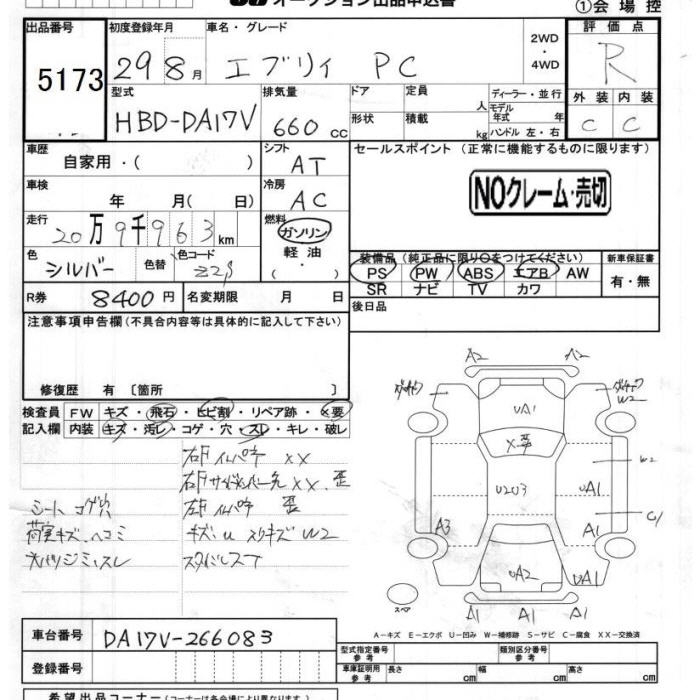 オークション出品申込書 ①会場控
出品番号 初度登録年月 車名・グレード 2WD・4WD 評価点
5173 29 8月 エブリィ PC R
型式 排気量 ドア 定員 人 ディーラー・並行 外装 内装
HBD-DA17V 660cc 形状 積載 kg モデル年式 年 ハンドル 左・右 C C
車歴 自家用・( ) シフト AT セールスポイント (正常に機能するものに限ります)
車検 年 月( 日) 冷房 AC NOクレーム・売切
走行 20万9千963km 燃料 ガソリン 軽油 ( ・ )
色 シルバー 色替 色コード Z2S
装備品(純正品に限り○をつけてください) 新車保証書
PS PW ABS エアB AW 有・無
SR ナビ TV カワ
R券 8400円 名変期限 月 日 後日品
注意事項申告欄(不具合内容等は具体的に記入して下さい)
修復歴 有 〔箇所 〕
検査員 FW キズ・飛石・ヒビ割・リペア跡・X要
記入欄 内装 キズ・汚レ・コゲ・穴・スレ・キレ・破レ
右F インパネ XX
右F サイドメンバー先 XX、歪
シート コゲ穴 左F インパネ 歪
荷室キズ、ヘコミ キズ、U スリキズ W2
スタッドレス
A2 A2
W2
UA1
X、歪
U2U3
W2
UA1
A3 A1 C1
UA2 UA1
A1 A1
スペア
A−キズ E−エクボ U−凹み W−補修跡 S−サビ C−腐食 XX−交換済
車台番号 DA17V-266083
登録番号
型式指定番号 参考 類別区分番号 参考
車庫証明用 参考 長さ cm 幅 cm 高さ cm
希望出品コーナー(コーナーは各会場により異なります)